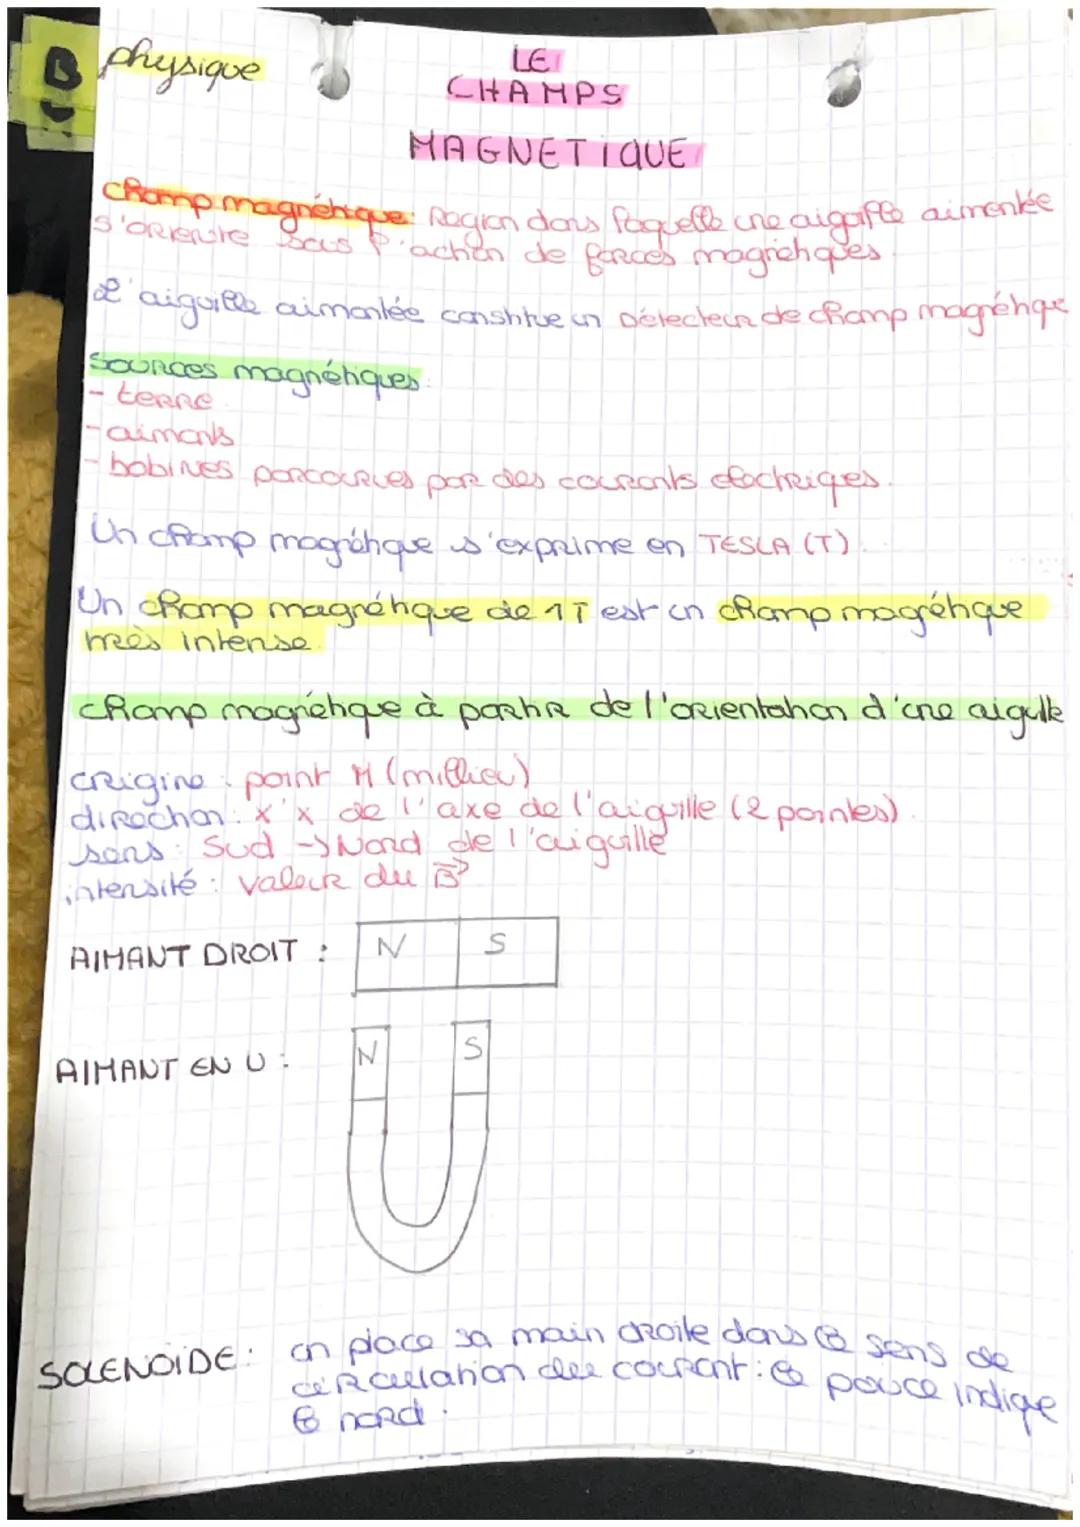 physique
LE
CHAMPS
MAGNETIQUE
champ magnétique: Region dans laquelle une aiguille aimentée
s'oriente sous l'action de forces magnétiques
L'aiguille aimantée constitue un Détecteur de champ magnétique
Sources magnétiques
- terre
- aimants
- bobines parcourues par des courants électriques.
Un champ magnétique s'exprime en TESLA (T).
Un champ magnétique de 1T est un champ magnétique
très intense.
champ magnétique à partir de l'orientation d'une aiguille
origine : point M (millieu)
direction : x'x de l'axe de l'aiguille (2 pointes).
sens : Sud -> Nord de l'aiguille
intensité : valeur du B⃗
AIMANT DROIT : N S
AIMANT EN U : N S
SOLENOIDE: on place sa main droite dans le sens de
circulation du courant : le pouce indique
le nord.